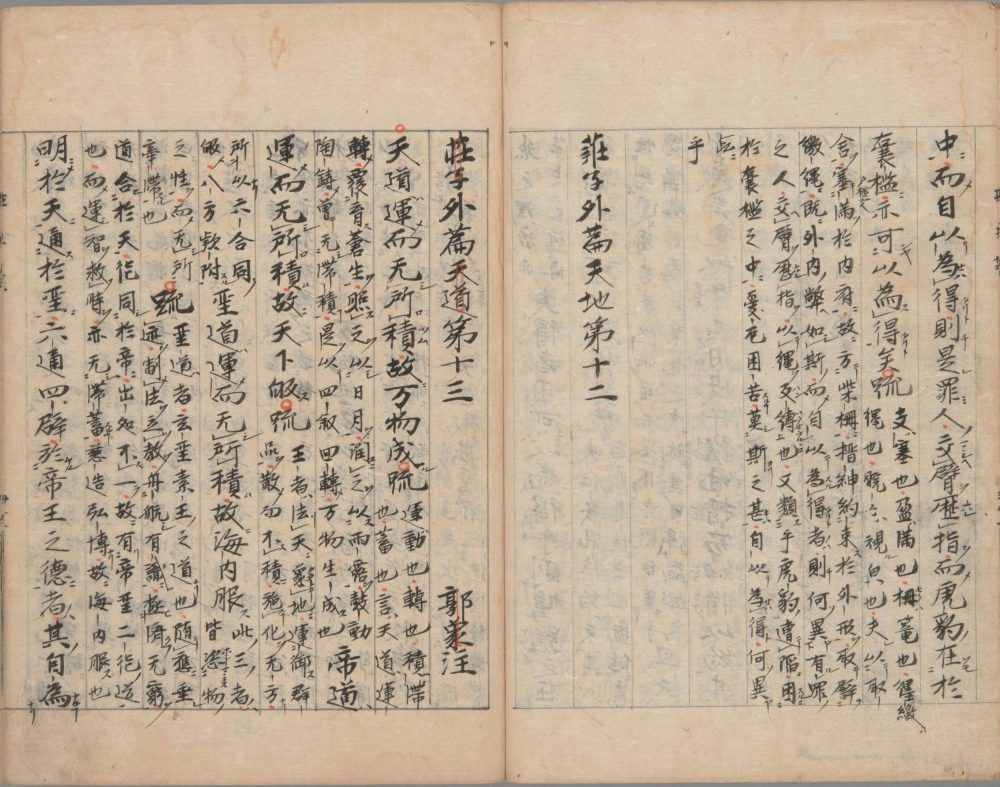 中而自以為得則是罪人交臂歷指而虎豹在於
囊檻亦可以為得矣疏
支塞也盈滿也柵篭也纆繳
繩也睆々視皃也夫以取
舍塞滿於内府故方柴柵搢紳約束於外形取辟
繳繩既外内弊如斯而自以為得者則何異有罪
之人交臂歷指以繩反縛也又類乎虎豹遭陷困
於囊檻之中憂危困苦莫斯之甚自以為得何異
此
乎
莊子外篇天地第十二
莊子外篇天道第十三　郭象注
天道運而无所積故万物成疏
運動也轉也積滯
也蓄也言天道運
轉覆育蒼生照之以日月潤之以雨露鼓動
陶鑄曾无滯積是以四叙四轉万物生成也
帝道
運而无所積故天下皈疏
王者法天象地運御群
品散而不積施化无方
所以六合同
皈八方款附
聖道運而无所積故海内服
此三者
皆恣物
之性而无所
牽滯也
疏
聖道者玄聖素王之道也随應垂
迹制法立教舟航有識拯濟无窮
道合於天德同於帝出處不一故有帝聖二道
也而運智救時亦无滯蓄慈造弘博故海内服也
明於天通於聖六通四辟於帝王之德者其自為